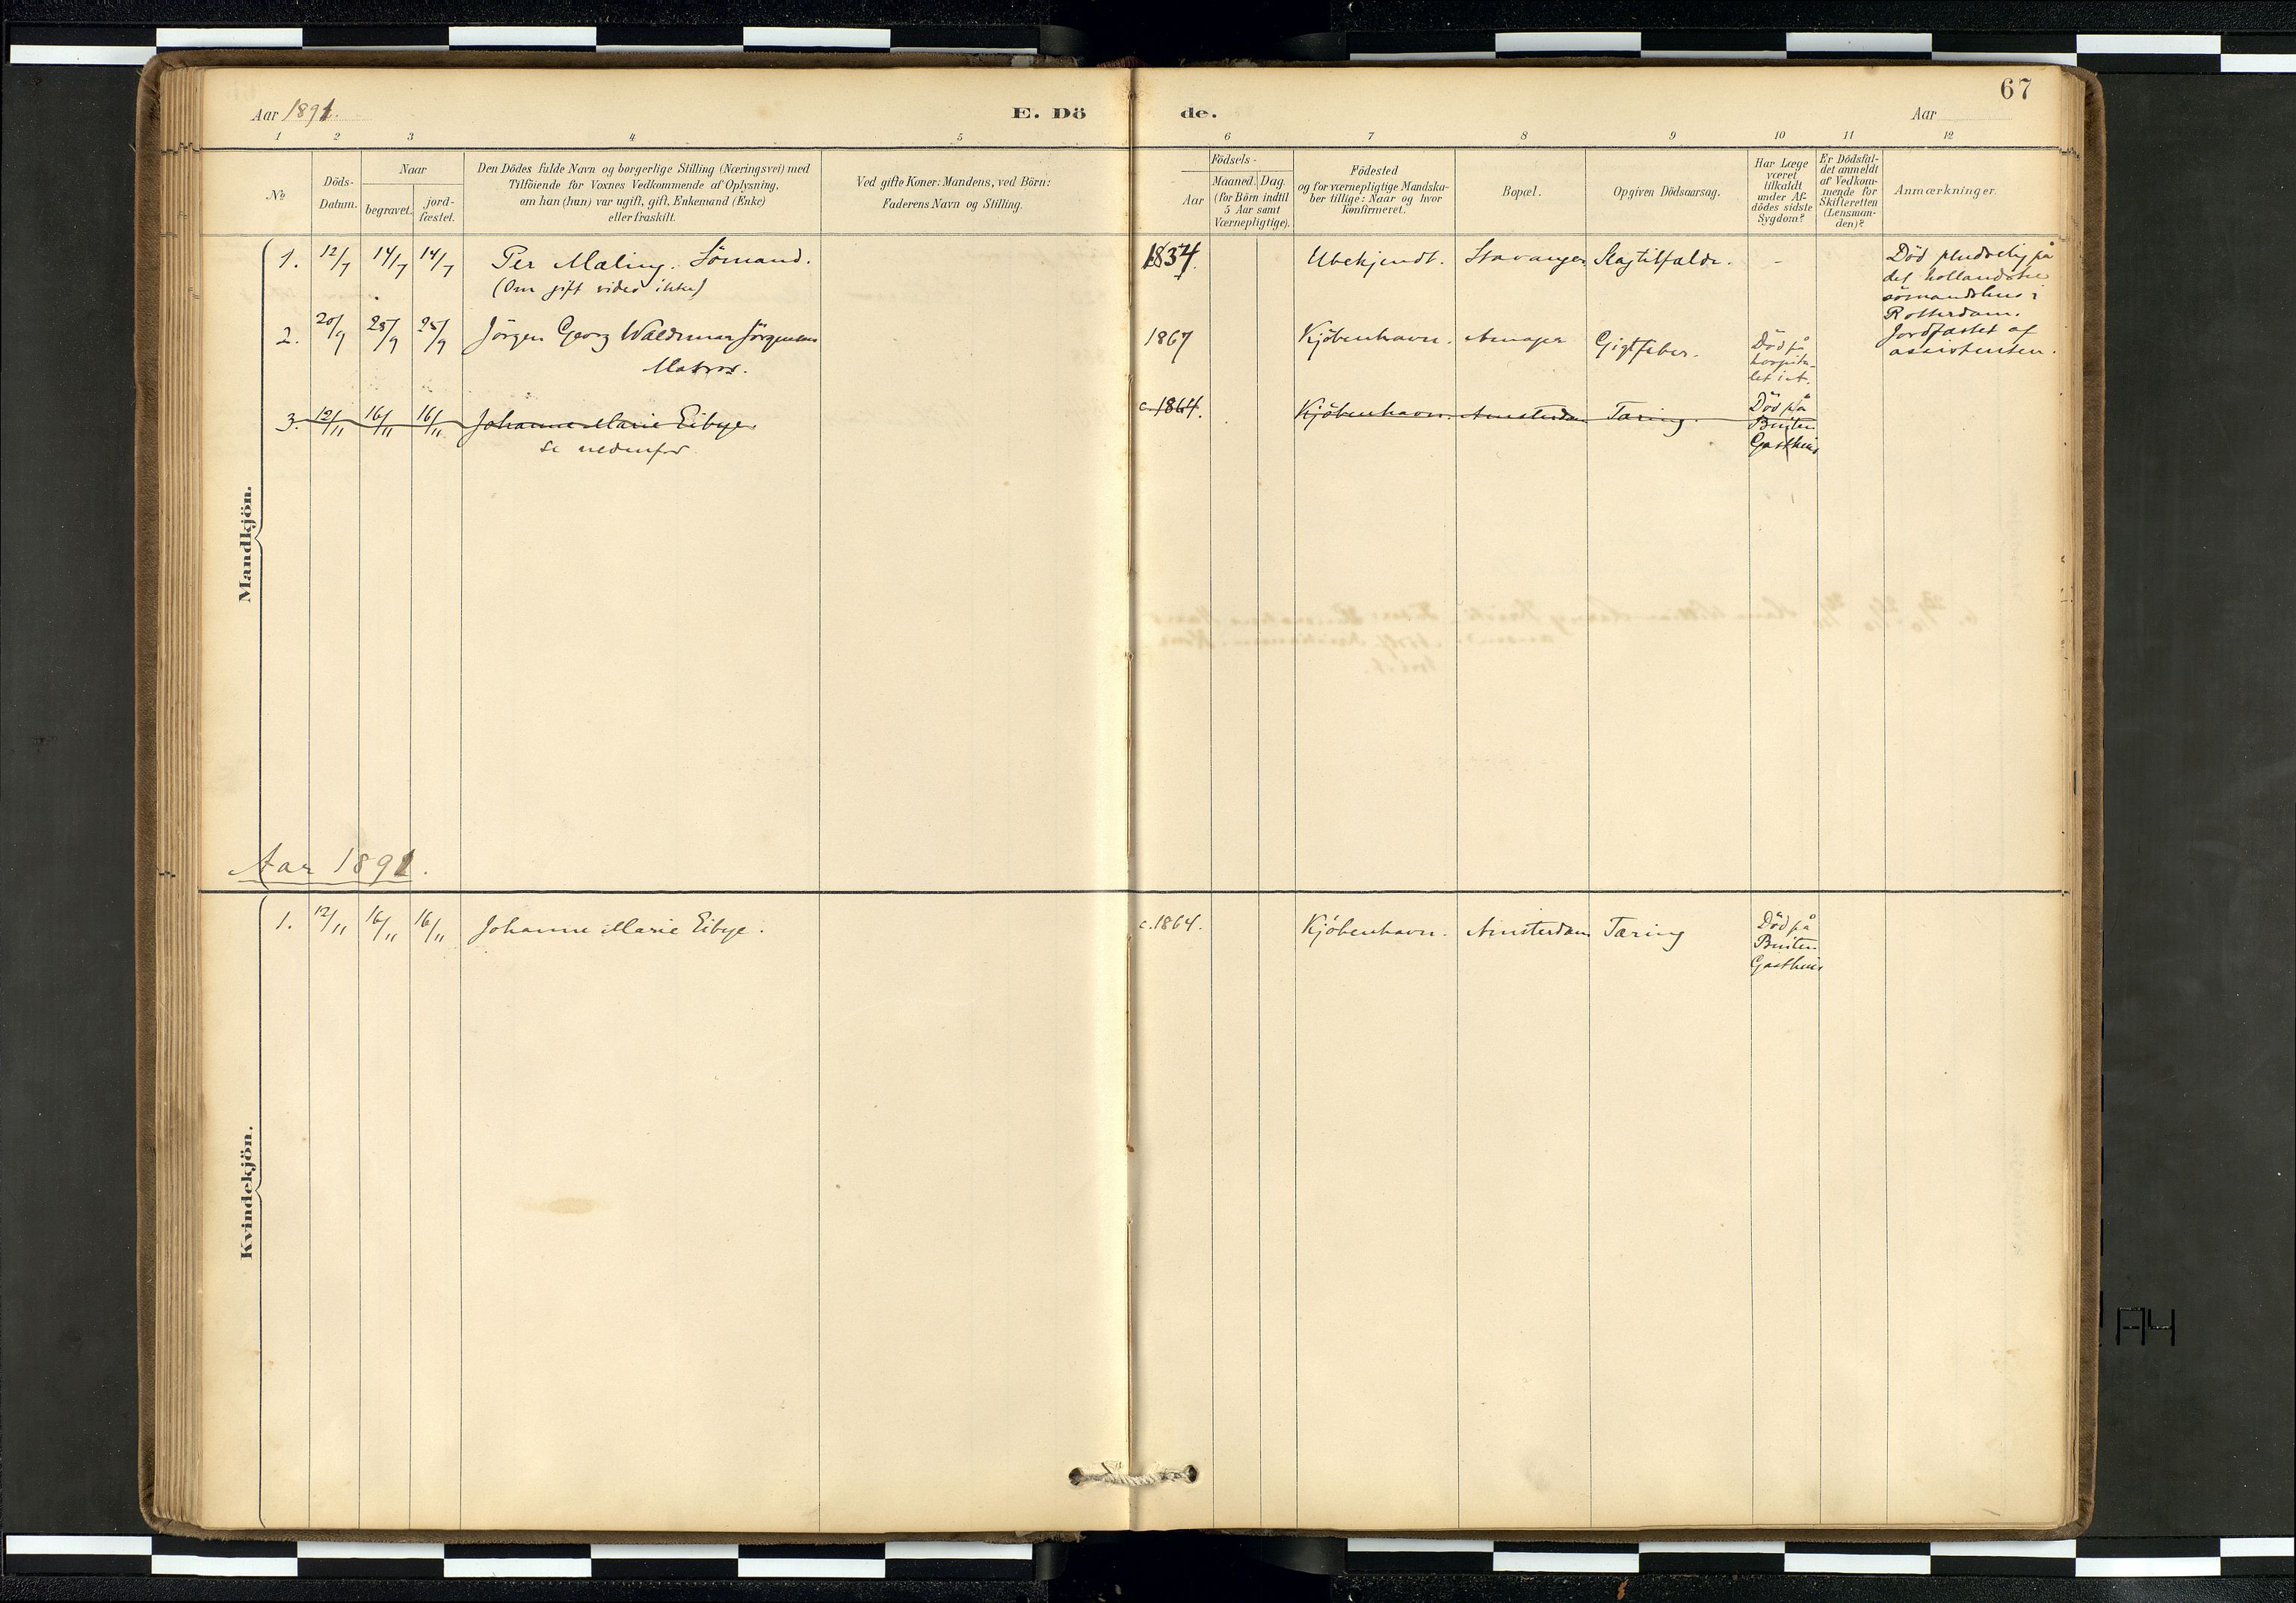 67
Aar 1891.
E. Dö
de.
Aar
1 2 3 4 5 6 7 8 9 10 11 12
№
Döds-
Datum.
Naar
begravet.
jord-
fæstet.
Den Dödes fulde Navn og borgerlige Stilling (Næringsvei) med
Tilföiende for Voxnes Vedkommende af Oplysning,
om han (hun) var ugift, gift, Enkemand (Enke)
eller fraskilt.
Ved gifte Koner: Mandens, ved Börn:
Faderens Navn og Stilling.
Födsels-
Aar
Maaned. Dag.
(for Börn indtil
5 Aar samt
Værnepligtige).
Födested
og for værnepligtige Mandska-
ber tillige: Naar og hvor
konfirmeret.
Bopæl.
Opgiven Dödsaarsag.
Har Læge
været
tilkaldt
under Af-
dödes sidste
Sygdom?
Er Dödsfal-
det anmeldt
af Vedkom-
mende for
Skifteretten
(Lensman-
den)?
Anmærkninger.
Mandkjön.
1. 12/7 14/7 14/7 Per Mæling. Sömand. 1834. Ubekjendt. Stavanger Slagtilfælde. -
(Om gift vides ikke)
Död pludselig på
det hollandske
sömandshus i
Rotterdam.
Jordfæstet af
assistenten.
2. 20/9 25/9 25/9 Jörgen Georg Waldemar Jörgensen 1867 Kjöbenhavn. Amager Gigtfeber.
Matros.
Död på
hospita-
let i A.
3. 12/11 16/11 16/11 Johanne Marie Eibye. c. 1864. Kjöbenhavn. Amsterdam Tæring.
Död på
Buiten
Gasthuis
Se nedenfor
Aar 1891.
Kvindekjön.
1. 12/11 16/11 16/11 Johanne Marie Eibye. c. 1864. Kjöbenhavn. Amsterdam Tæring
Död på
Buiten
Gasthuis